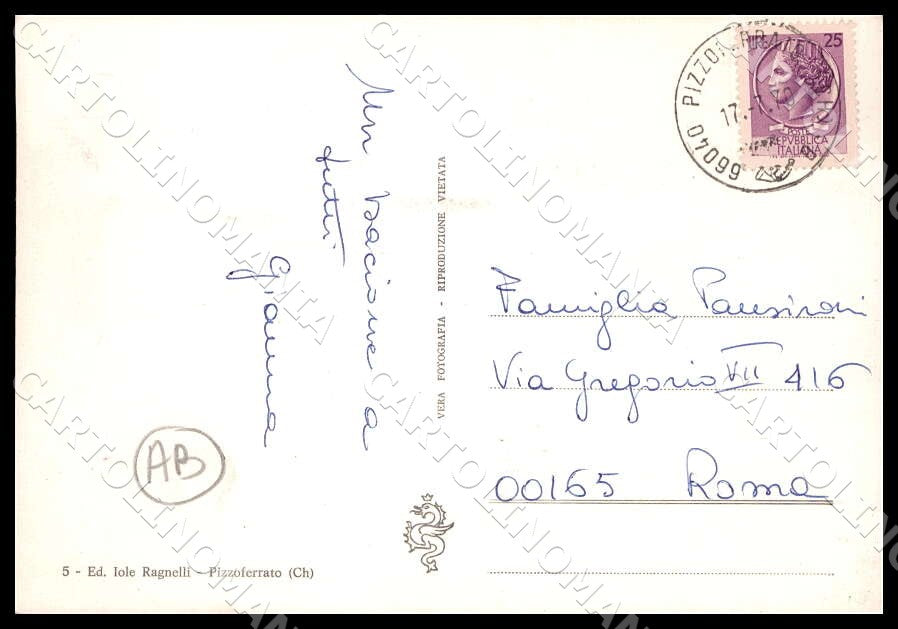 Un bacione a
tutti
Gianna
VERA FOTOGRAFIA - RIPRODUZIONE VIETATA
25
POSTE
REPVBBLICA
ITALIANA
66040 PIZZOFERRATO
17.-7.
Famiglia Pansironi
Via Gregorio VII 416
00165 Roma
AB
5 - Ed. Iole Ragnelli - Pizzoferrato (Ch)
CARTOLINOMANIA